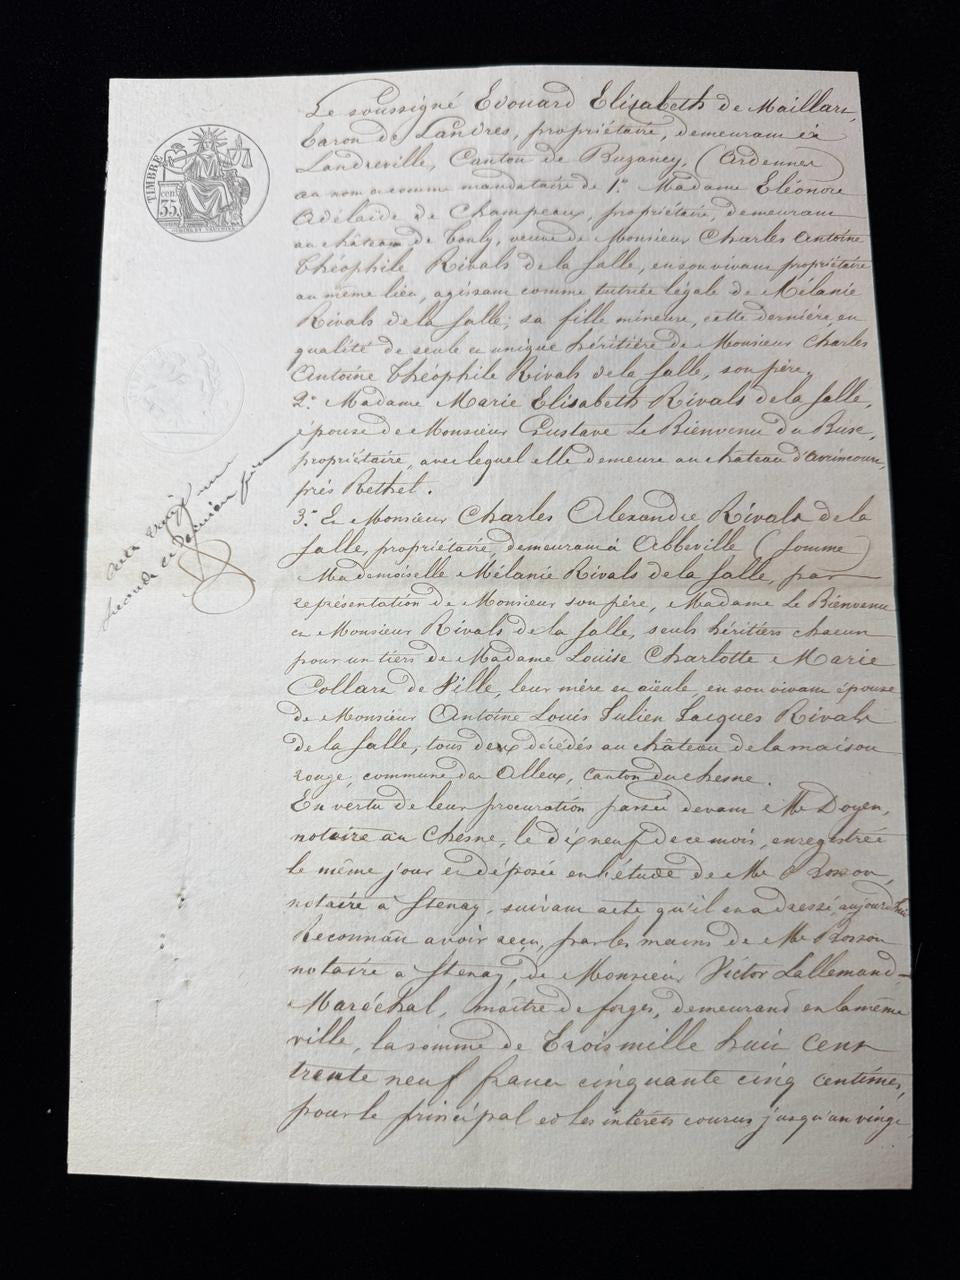 TIMBRE
cen.
35
Le soussigné Edouard Elisabeth de Maillart,
Baron de Landres, propriétaire, demeurant à
Landreville, Canton de Buzancy, (Ardennes)
au nom et comme mandataire de 1.° Madame Eléonore
Adélaïde de Champeaux, propriétaire, demeurant
au château de Touly, veuve de Monsieur Charles Antoine
Théophile Rivals de la Salle, en son vivant propriétaire
au même lieu, agissant comme tutrice légale de Mélanie
Rivals de la Salle, sa fille mineure, cette dernière en
qualité de seule et unique héritière de Monsieur Charles
Antoine Théophile Rivals de la Salle, son père,
2.° Madame Marie Elisabeth Rivals de la Salle,
épouse de Monsieur Gustave Le Bienvenu du Busc,
propriétaire, avec lequel elle demeure au château d'Avrincourt,
près Rethel.
3.° Et Monsieur Charles Alexandre Rivals de la
Salle, propriétaire, demeurant à Abbeville (Somme)
Mademoiselle Mélanie Rivals de la Salle, par
représentation de Monsieur son père, Madame Le Bienvenu
et Monsieur Rivals de la Salle, seuls héritiers chacun
pour un tiers de Madame Louise Charlotte Marie
Collart de Ville, leur mère et aïeule, en son vivant épouse
de Monsieur Antoine Louis Julien Jacques Rivals
de la Salle, tous deux décédés au château de la maison
rouge, commune des Alleux, Canton du Chesne.
En vertu de leur procuration passée devant Me Doyen,
notaire au Chesne, le dix neuf de ce mois, enregistrée
le même jour et déposée en l'étude de Me Rosson,
notaire à Stenay, suivant acte qu'il en a dressé, aujourd'hui
Reconnait avoir reçu, par les mains de Me Rosson
notaire à Stenay, de Monsieur Victor Lallemand-
Maréchal, maître de forges, demeurant en la même
ville, la somme de Trois mille huit cent
trente neuf francs cinquante cinq centimes,
pour le principal et les intérêts courus jusqu'au vingt